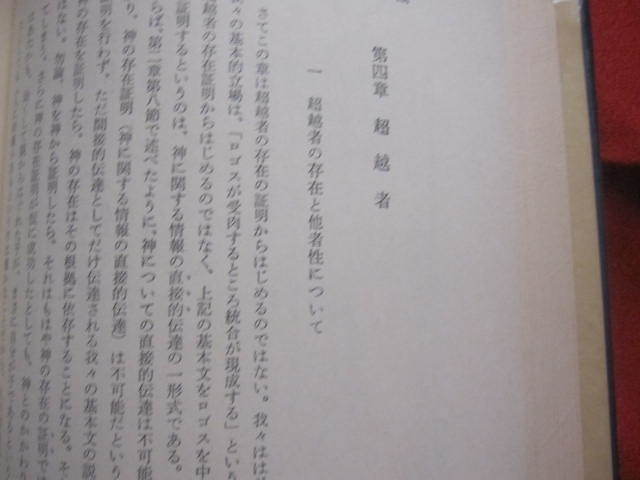 第四章 超越者
一 超越者の存在と他者性について
さてこの章は超越者の存在の証明からはじめるのではない。我々はは
我々の基本的立場は、「ロゴスが受肉するところ統合が現成する」という
越者の存在証明からはじめるのではなく、上記の基本文をロゴスを中
証明するというのは、神に関する情報の直接的伝達の一形式である。
らば、第二章第八節で述べたように、神についての直接的伝達は不可能
り、神の存在証明（神に関する情報の直接的伝達）は不可能だという
明を行わず、ただ間接的伝達としてだけ伝達される我々の基本文の説
神の存在を証明したら、神の存在はその根拠に依存することになる。そ
はない。勿論、神を神から証明したら、それはもはや神の存在の証明では
てしまう。さらに神の存在証明が仮に成功したとしても、神とのかかわり